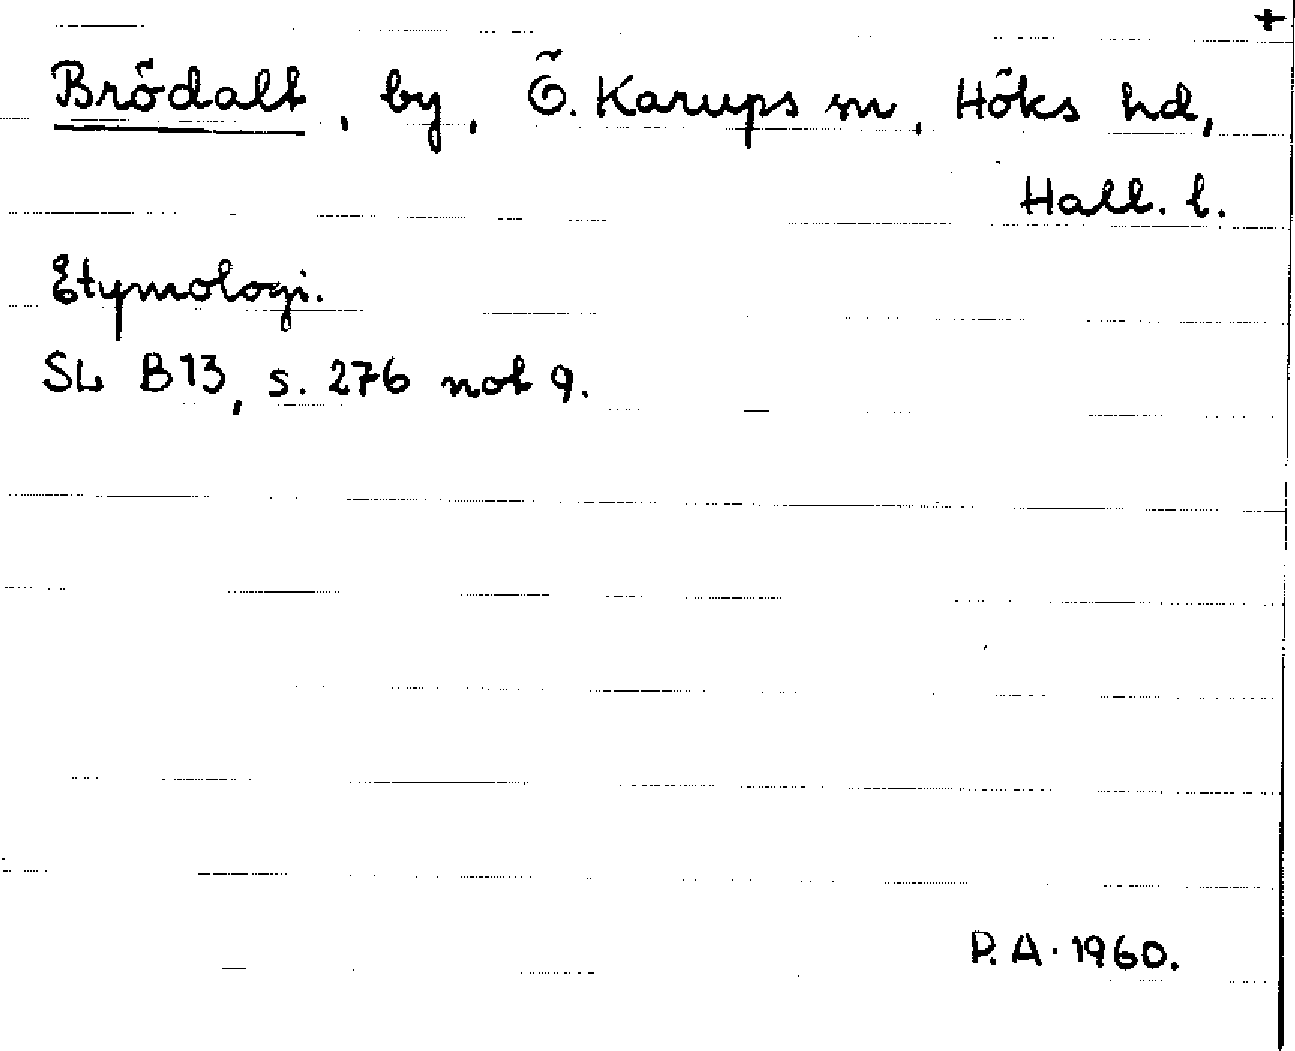 +
Brödalt, by, Ö. Karups sn, Höks hd,
Hall. l.
Etymologi.
SL B13, s. 276 not 9.
P.A. 1960.